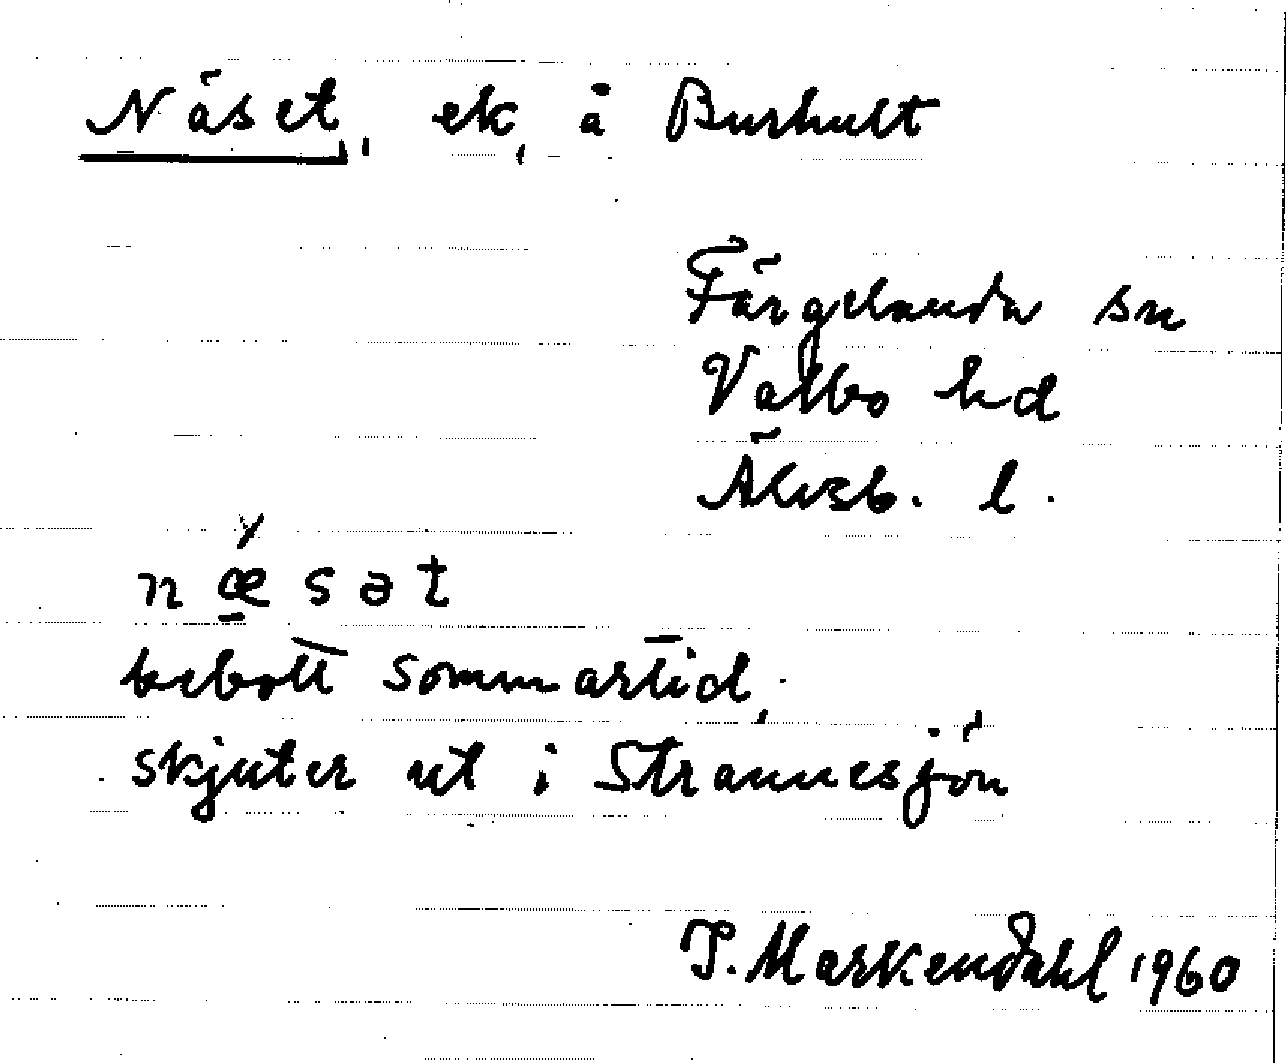 Näset, ek, å Burhult
Färgelanda sn
Valbo hd
Älvsb. l.
næ̠sət
bebott sommartid,
skjuter ut i Strannesjön
T. Markendahl 1960